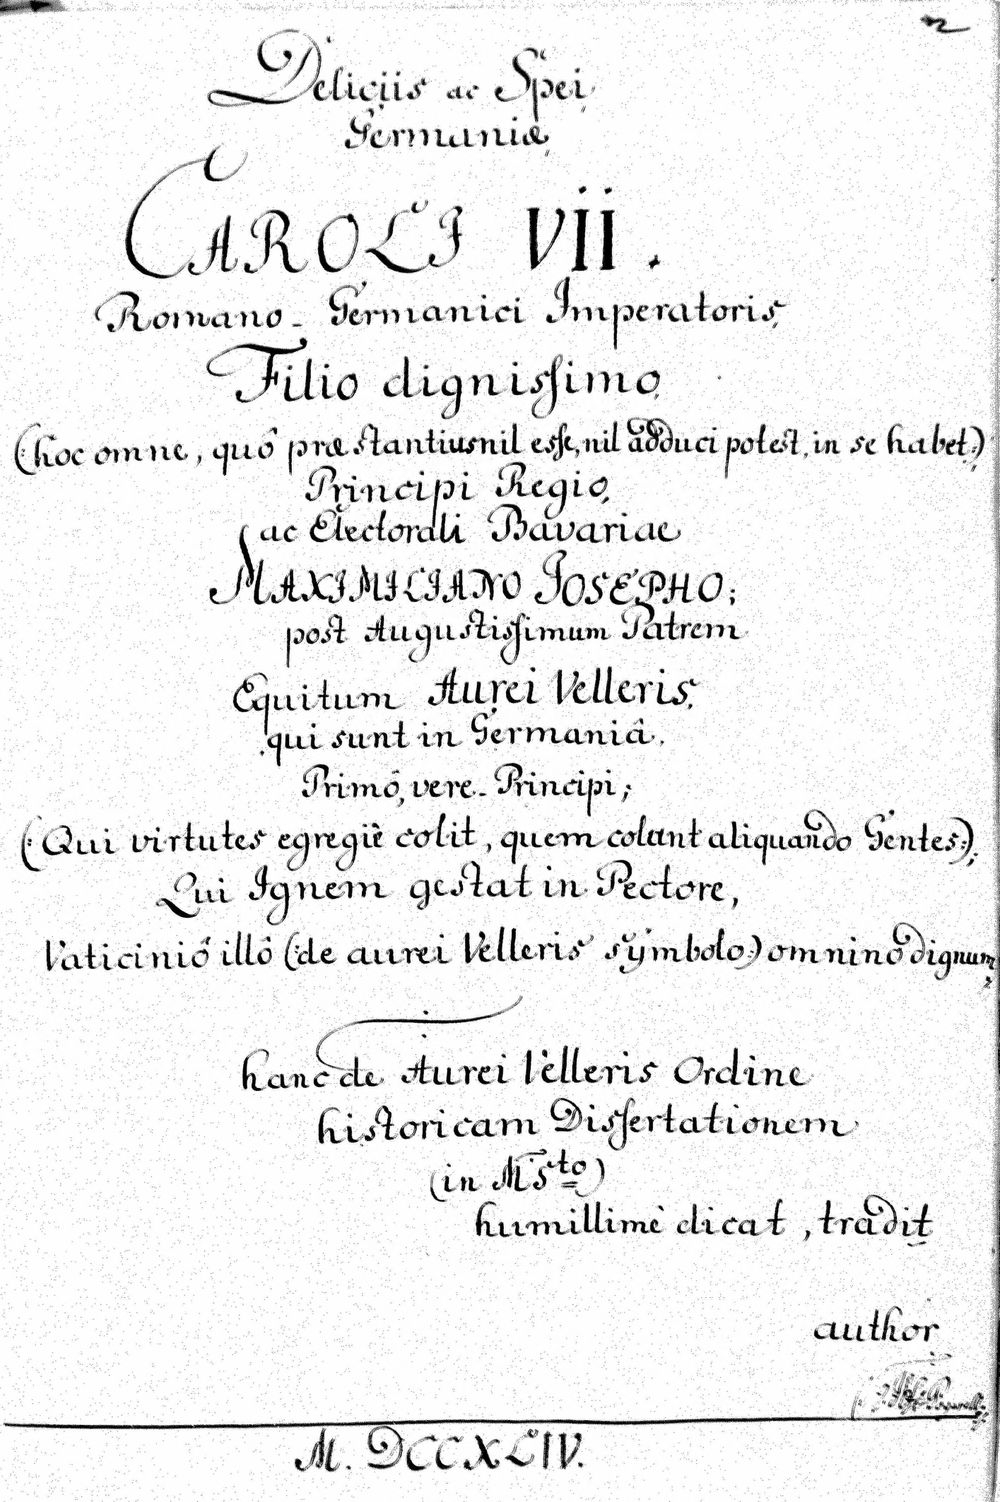 2
Deliciis ac Spei
Germaniæ,
CAROLI VII.
Romano-Germanici Imperatoris,
Filio dignissimo,
(hoc omne, quô præstantius nil esse, nil adduci potest, in se habet:)
Principi Regio,
ac Electorali Bavariae
MAXIMILIANO JOSEPHO;
post Augustissimum Patrem
Equitum Aurei Velleris,
qui sunt in Germaniâ,
Primô, vere-Principi;
(: Qui virtutes egregiè colit, quem colant aliquando Gentes:);
Qui Ignem gestat in Pectore,
Vaticiniô illô (:de aurei Velleris symbolo:) omninô dignum,
hanc de Aurei Velleris Ordine
historicam Dissertationem
(in MSto)
humillimè dicat, tradit
author
M. DCCXLIV.